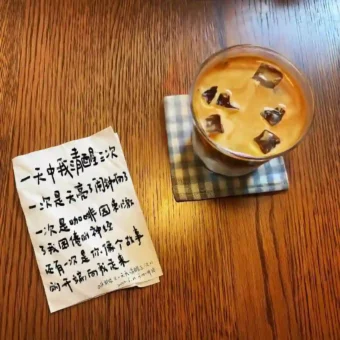 一天中我清醒三次
一次是天亮了闹钟响了
一次是咖啡因刺激
了我困倦的神经
还有一次是你,像个故事
的开端,向我走来